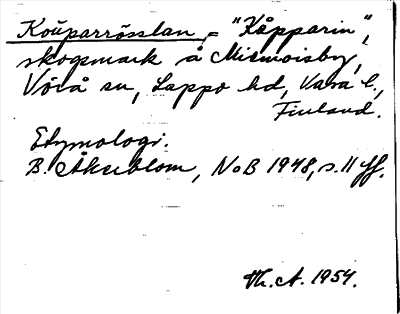 Koůparrösslan, = "Kåpparin",
skogsmark å Miemoisby,
Vörå sn, Lappo hd, Vasa l.,
Finland.
Etymologi.
B. Åkerblom, NoB 1948, s. 11 ff.
Th. A. 1954.